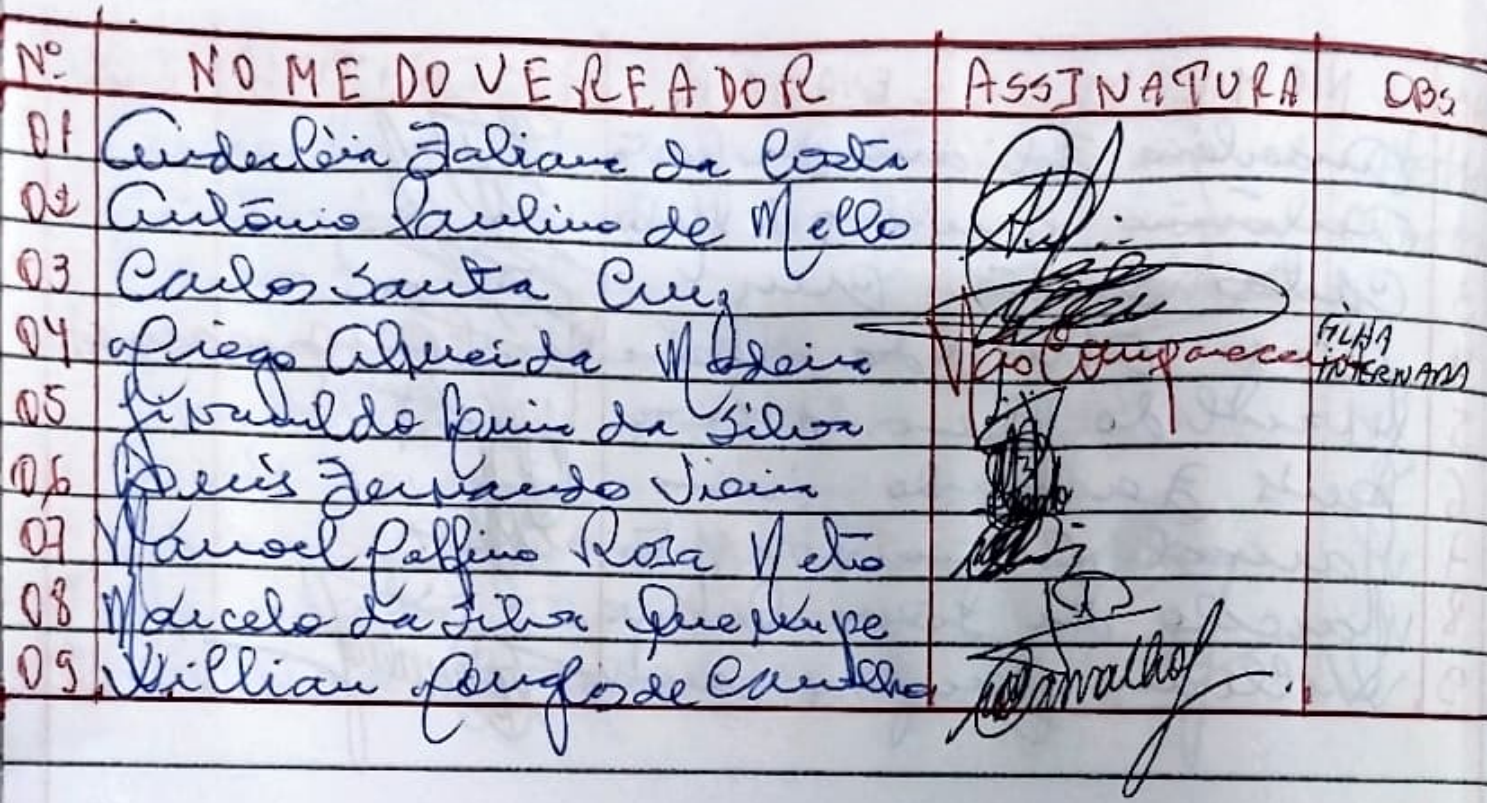 Nº NOME DO VEREADOR ASSINATURA OBS
01 Anderléia Fabiana da Costa
02 Antônio Paulino de Mello
03 Carlos Santa Cruz
04 Diego Almeida Madeira Não Compareceu FILHA INTERNADA
05 da Silva
06 Fernando Vieira
07 Manoel Rosa Neto
08 Marcelo da Silva
09 Willian de Carvalho Carvalho